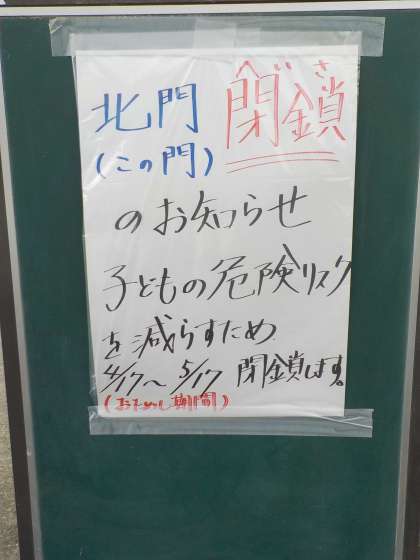 へいさ
北門 閉鎖
(この門)
のお知らせ
子どもの危険リスク
を減らすため
4/17～5/17 閉鎖します。
(おためし期間)